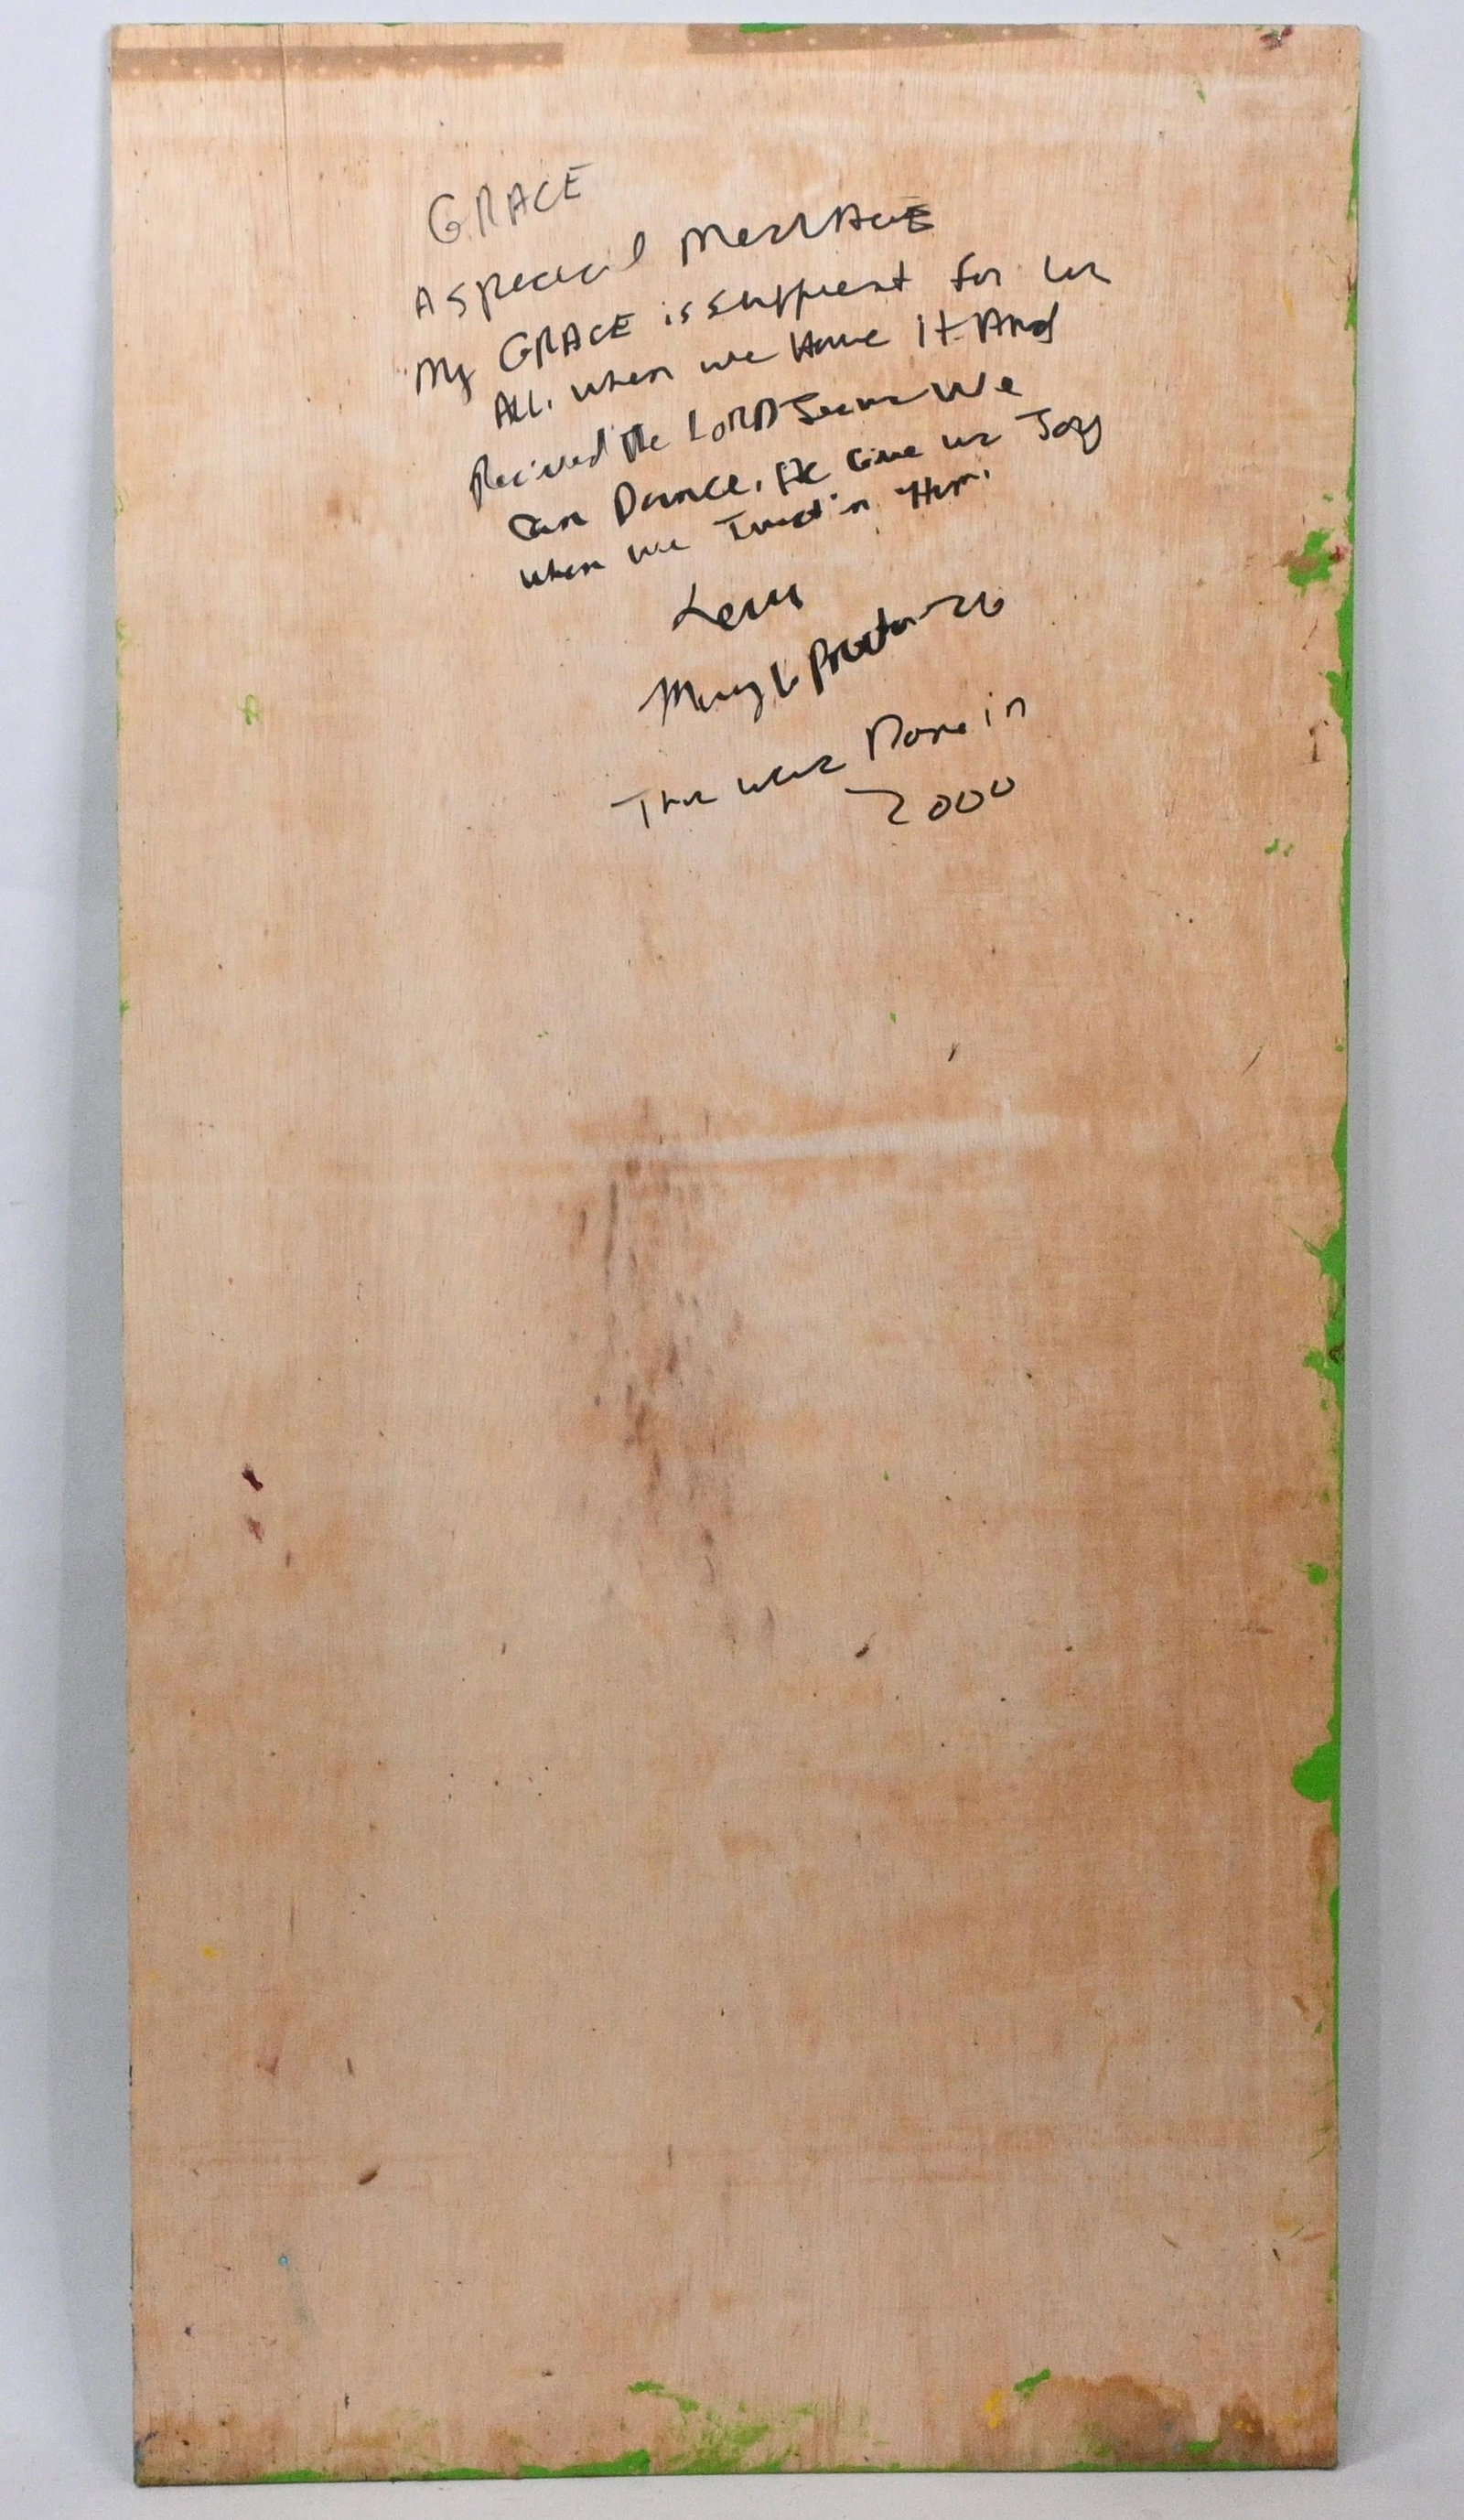 GRACE
A special MessAGE
My GRACE is suffient for us
All. when we Have It And
Recived the LORD Jesus We
Can Dance. He Give us Joy
when we Trust in Him.
Mary L Proctor
This was Done in
2000